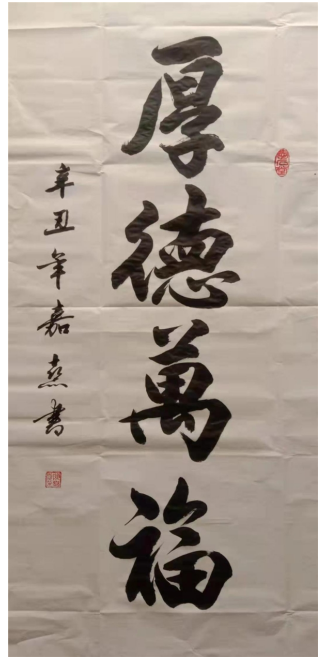 厚德萬福
辛丑年嘉燕書